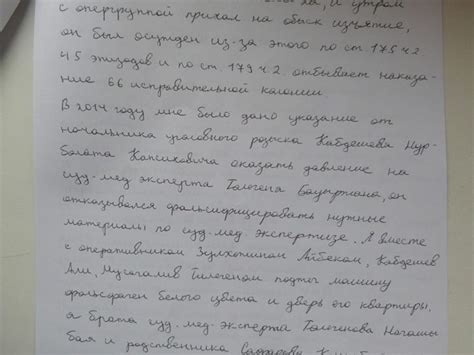 ха, и утром
с опергруппой приехал на обыск изъятие,
он был осужден из-за этого по ст. 175 ч 2
45 эпизодов и по ст. 179 ч. 2. отбывает наказа-
ние 66 исправительной колонии
В 2014 году мне было дано указание от
начальника уголовного розыска Кабдешева Нур-
болата Капсиховича оказать давление на
суд. мед эксперта Толегена Бауыржана, он
отказывался фальсифицировать нужные
материалы по суд. мед. экспертизе. Я вместе
с оперативником Айбеком, Кабдешев
Али, Мусагалив Тилегеном поджог машину
фольсфаген белого цвета и дверь его квартиры,
а брата суд. мед. эксперта Толегенова
бая и родственника